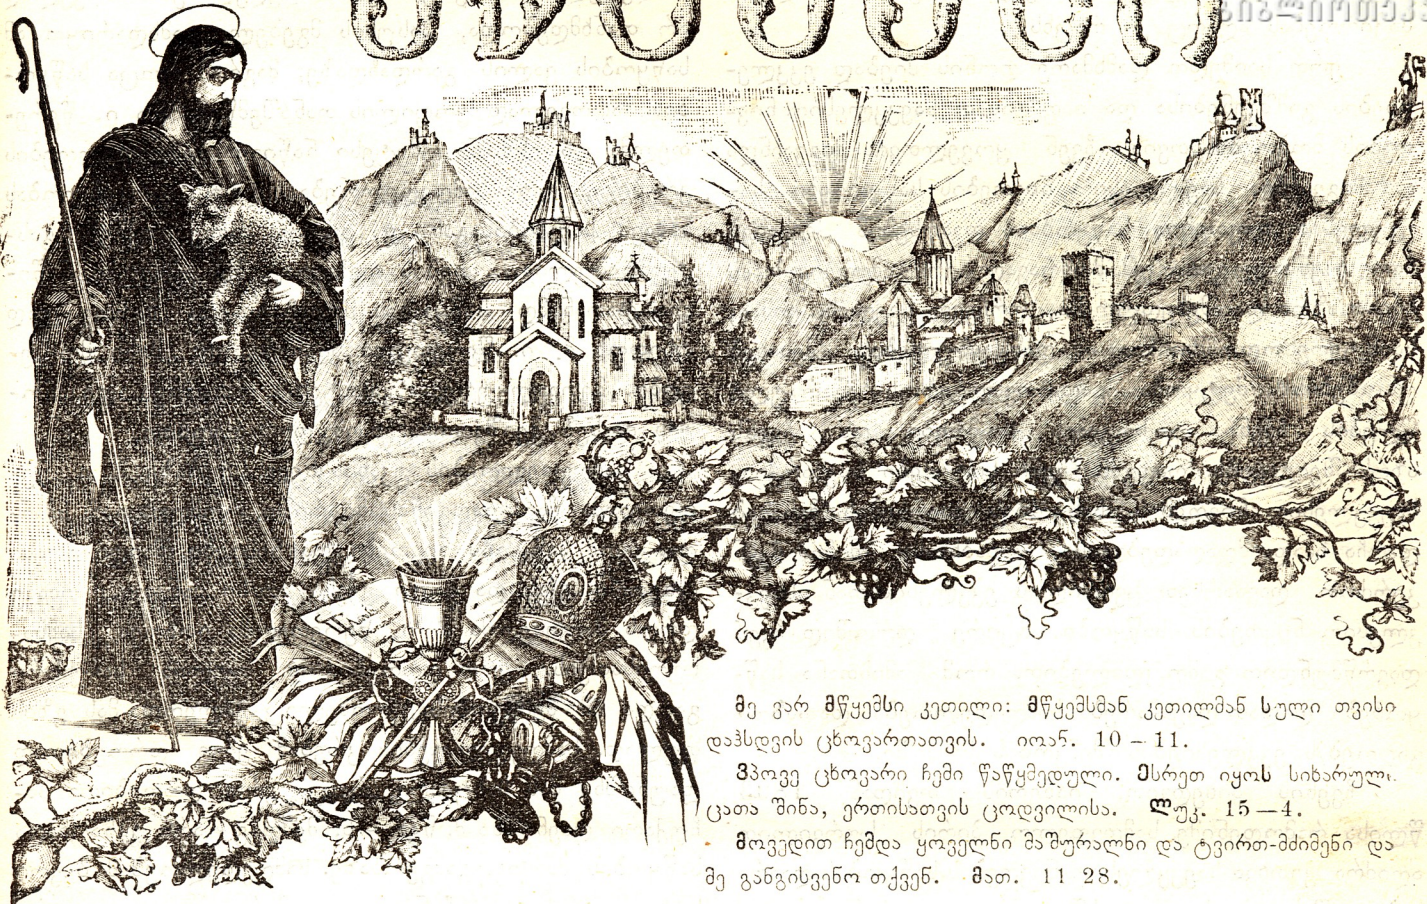 მე ვარ მწყემსი კეთილი: მწყემსმან კეთილმან სული თვისი
დაჰსდვის ცხოვართათვის. იოან. 10 – 11.
ვპოვე ცხოვარი ჩემი წაწყმედული. ესრეთ იყოს სიხარული
ცათა შინა, ერთისათვის ცოდვილისა. ლუკ. 15—4.
მოვედით ჩემდა ყოველნი მაშურალნი და ტვირთ-მძიმენი და
მე განგისვენო თქვენ. მათ. 11 28.